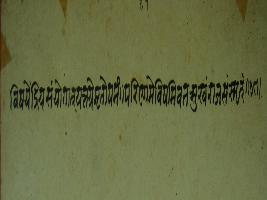 विषयेंद्रियसंयोगात्यत्तदग्रेमृतोपमं।परिणामेविषमिवतत्सुखंराजसंस्मृतं।३८।